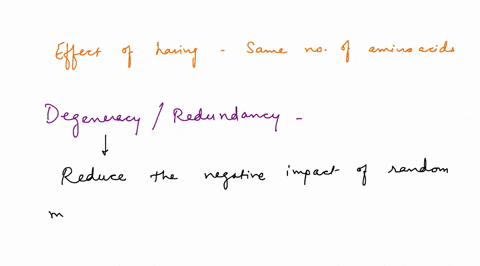 Effect of having - Same no. of amino acids
Degeneracy / Redundancy -
Reduce the negative impact of random
m